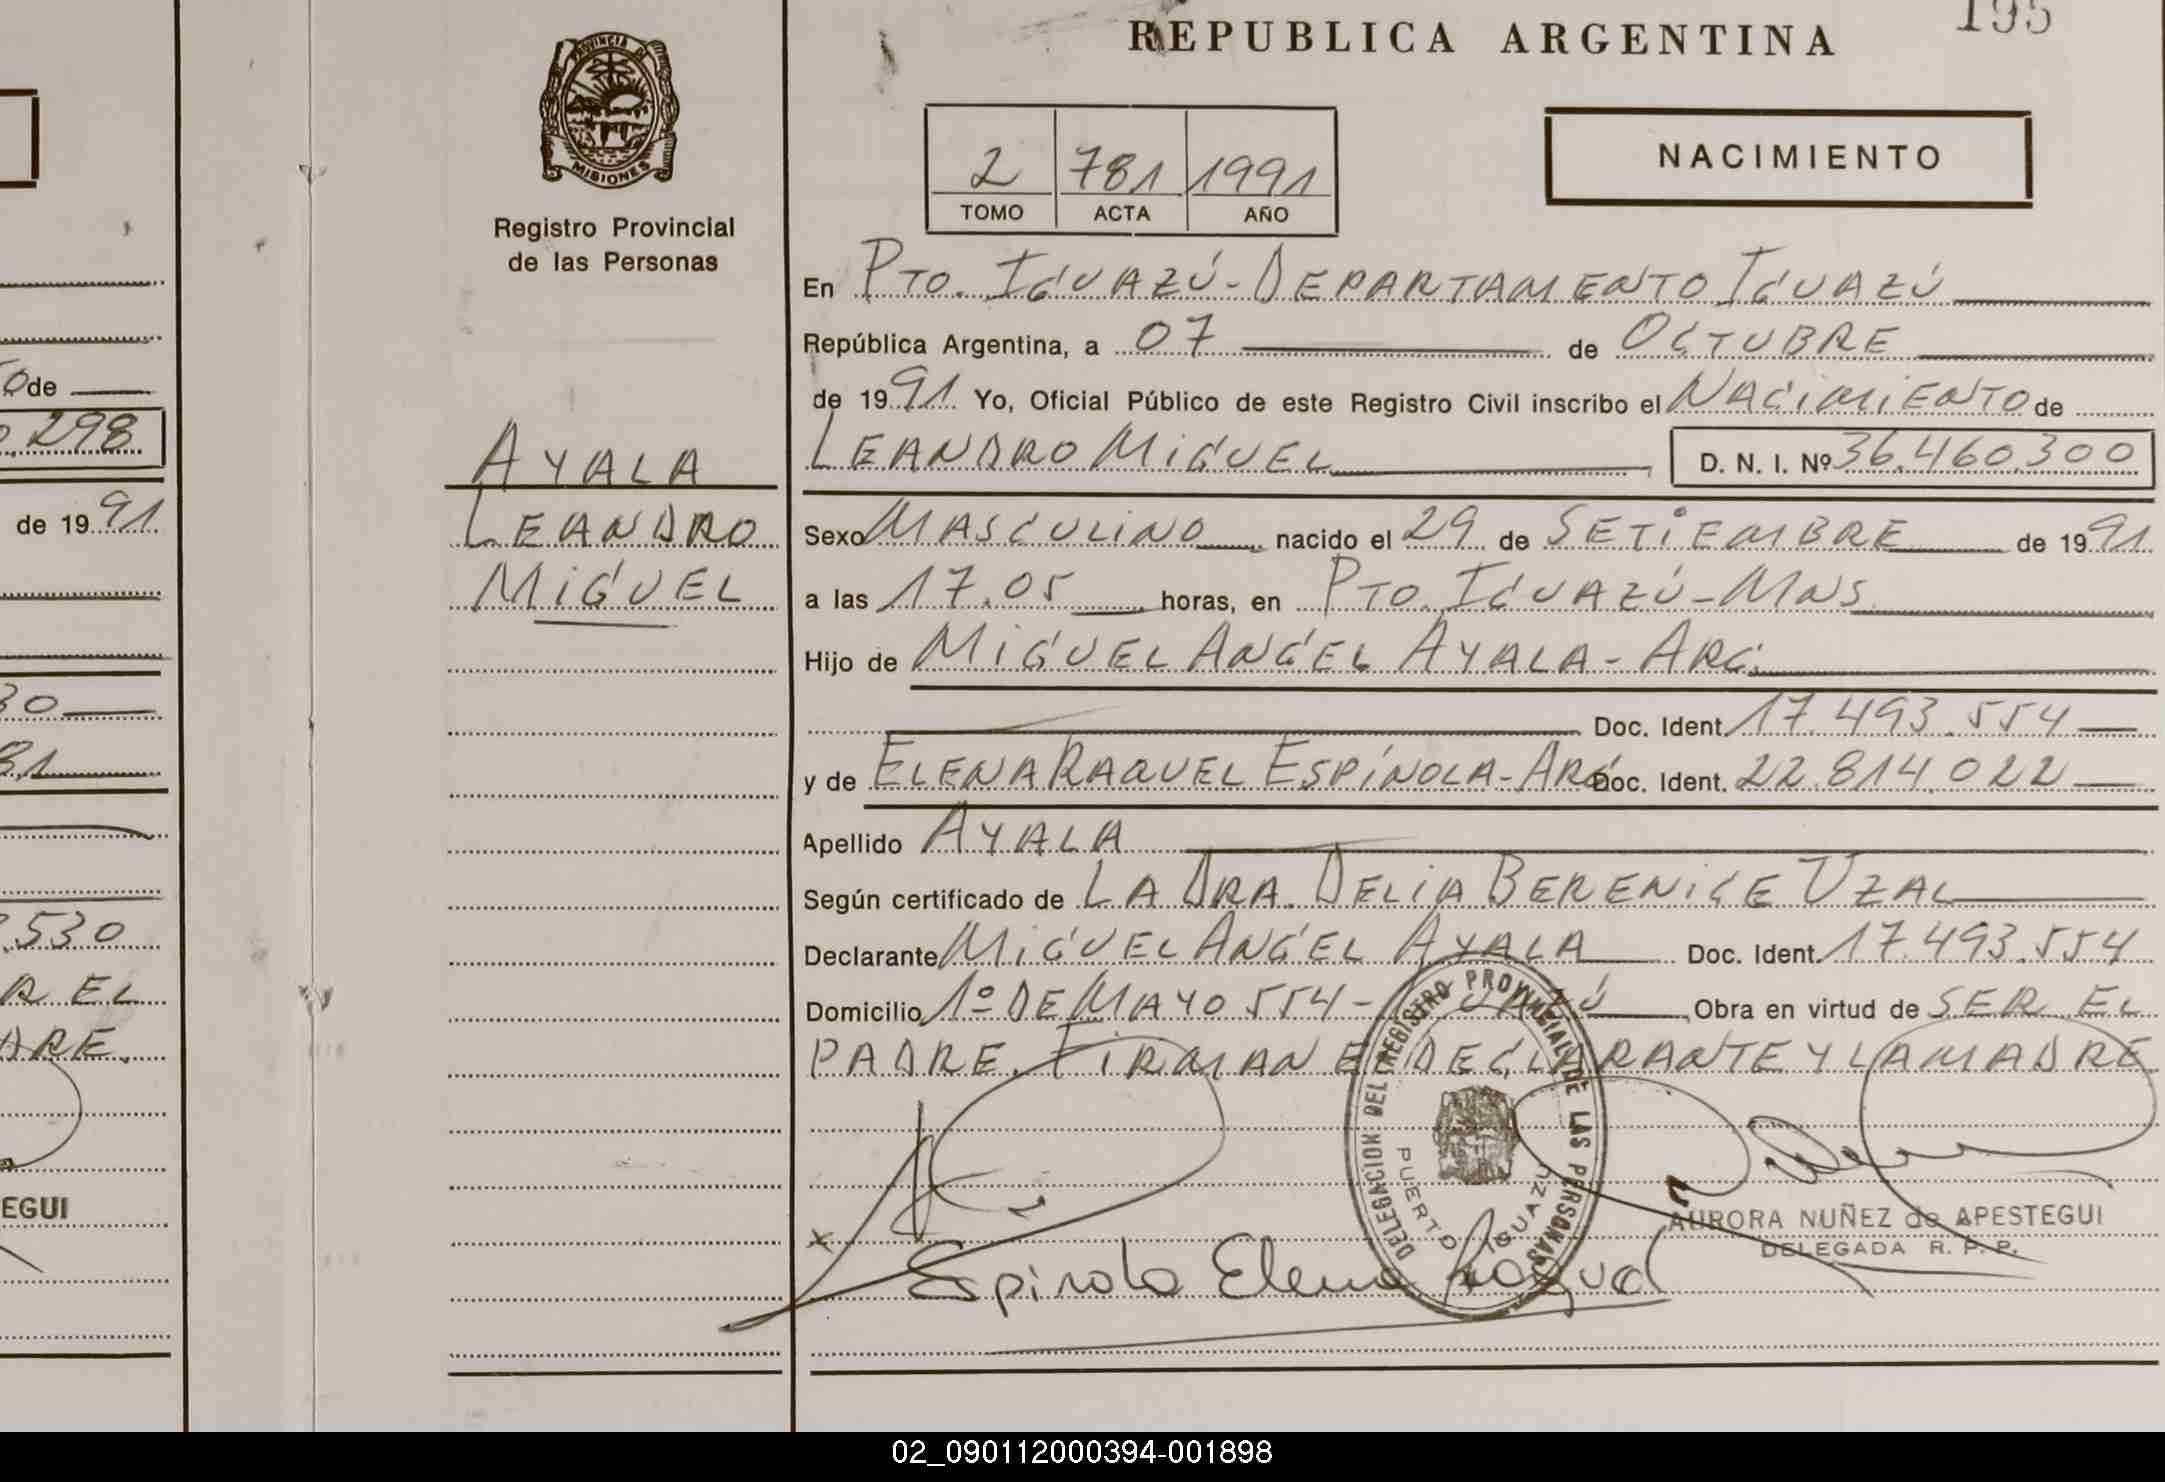 195
REPUBLICA ARGENTINA
PROVINCIA DE
MISIONES
Registro Provincial
de las Personas
2 781 1991
TOMO ACTA AÑO
NACIMIENTO
En PTO. IGUAZÚ - DEPARTAMENTO IGUAZÚ
República Argentina, a 07 de OCTUBRE
de 1991 Yo, Oficial Público de este Registro Civil inscribo el NACIMIENTO de
LEANDRO MIGUEL D. N. I. Nº 36.460.300
AYALA
LEANDRO
MIGUEL
Sexo MASCULINO nacido el 29 de SETIEMBRE de 1991
a las 17.05 horas, en PTO. IGUAZÚ - MNS
Hijo de MIGUEL ANGEL AYALA - ARG.
Doc. Ident. 17.493.554
y de ELENA RAQUEL ESPÍNOLA - ARG Doc. Ident. 22.814.022
Apellido AYALA
Según certificado de LA DRA. DELIA BERENICE UZAL
Declarante MIGUEL ANGEL AYALA Doc. Ident. 17.493.554
Domicilio 1º DE MAYO 554 - IGUAZÚ Obra en virtud de SER EL
PADRE. FIRMAN EL DECLARANTE Y LA MADRE
DELEGACION DEL REGISTRO PROVINCIAL DE LAS PERSONAS
PUERTO IGUAZU
AURORA NUÑEZ de APESTEGUI
DELEGADA R. P. P.
Espinola Elena Raquel
de
298
de 1991
30
81
530
R EL
DRE.
EGUI
02_090112000394-001898